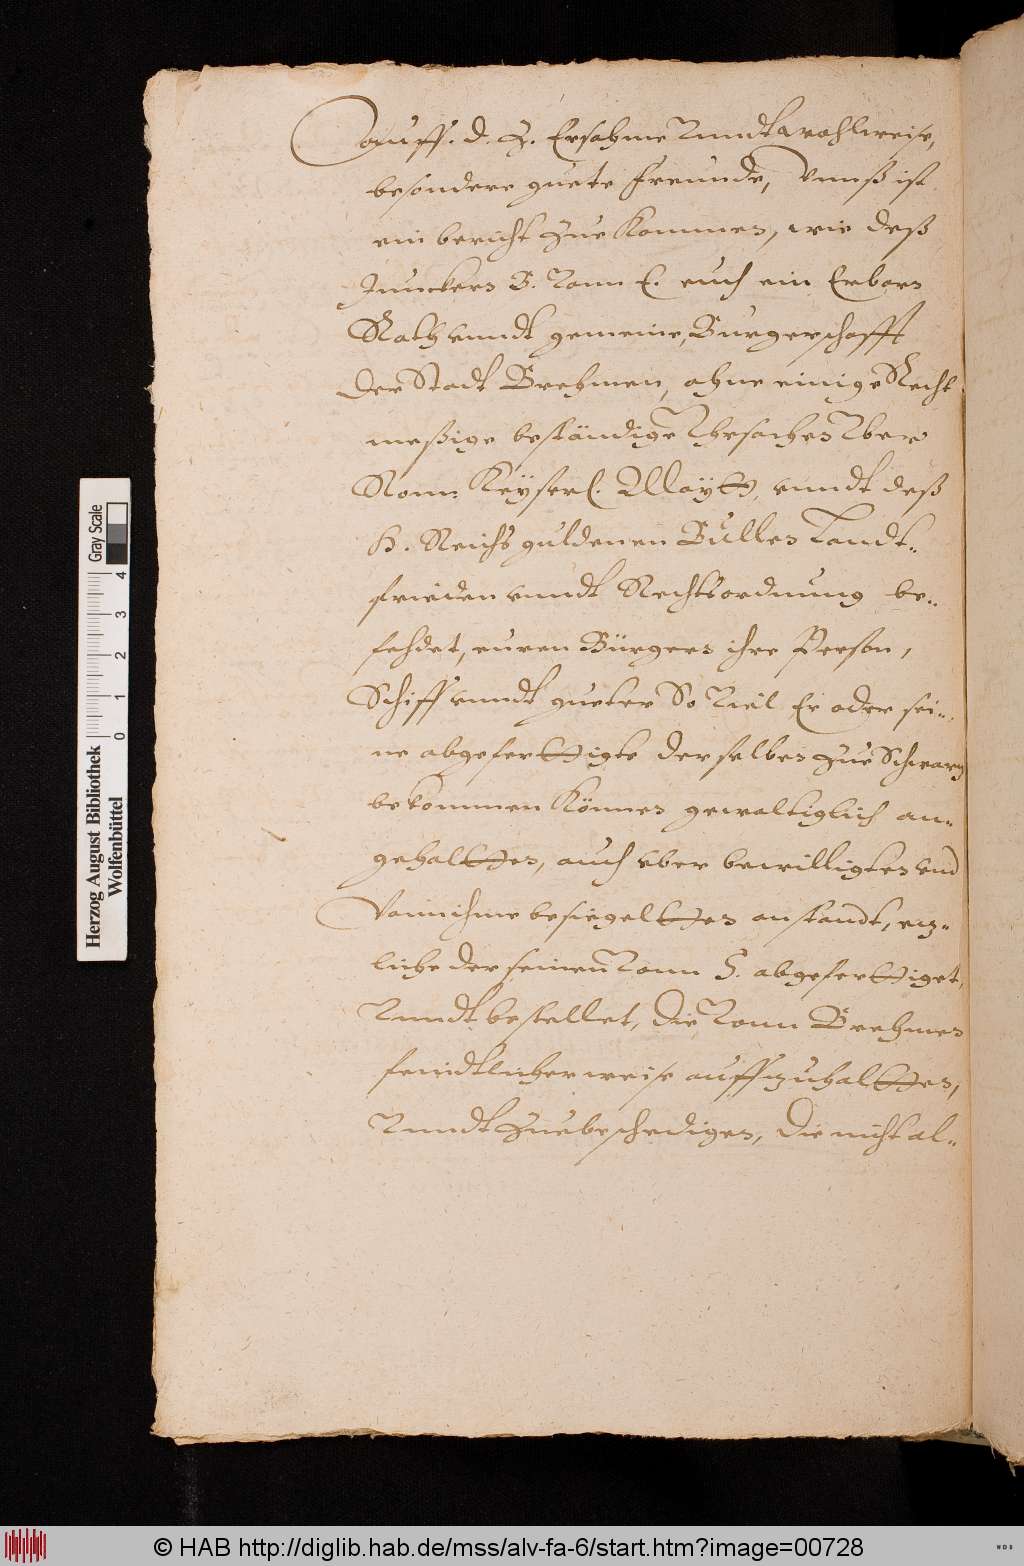 auff. d. Z. Ersahme Unndt wohlweise,
besondere guete freunde, Unnß ist
ein bericht zue Kommen, wie deß
Junckers B. vonn E. euch ein Erbarn
Rath unndt gemeine, Burgerschafft
der Stadt Brehmen, ahne einige Recht
meßige beständige Uhrsachen Uber
Rom: Keÿserl. Maÿtt, unndt deß
H. Reichs guldenen Bullen Landt-
frieden unndt Rechtsordnung be-
fehdet, euren Bürgern ihre Person,
Schiff unndt gueter So Viel Er oder sei-
ne abgeferttigte derselben zue
bekommen Können gewaltiglich an-
gehaltten, auch uber bewilligten und
Von ihme besiegeltten anstandt, etz-
liche der seinen Vonn E. abgeferttiget,
Unndt bestellet, die Vonn Brehmen
feindtlicher weise auffzuhaltten,
Unndt zue beschedigen, die nicht al-
Herzog August Bibliothek
Wolfenbüttel
Gray Scale
0 1 2 3 4
© HAB http://diglib.hab.de/mss/alv-fa-6/start.htm?image=00728